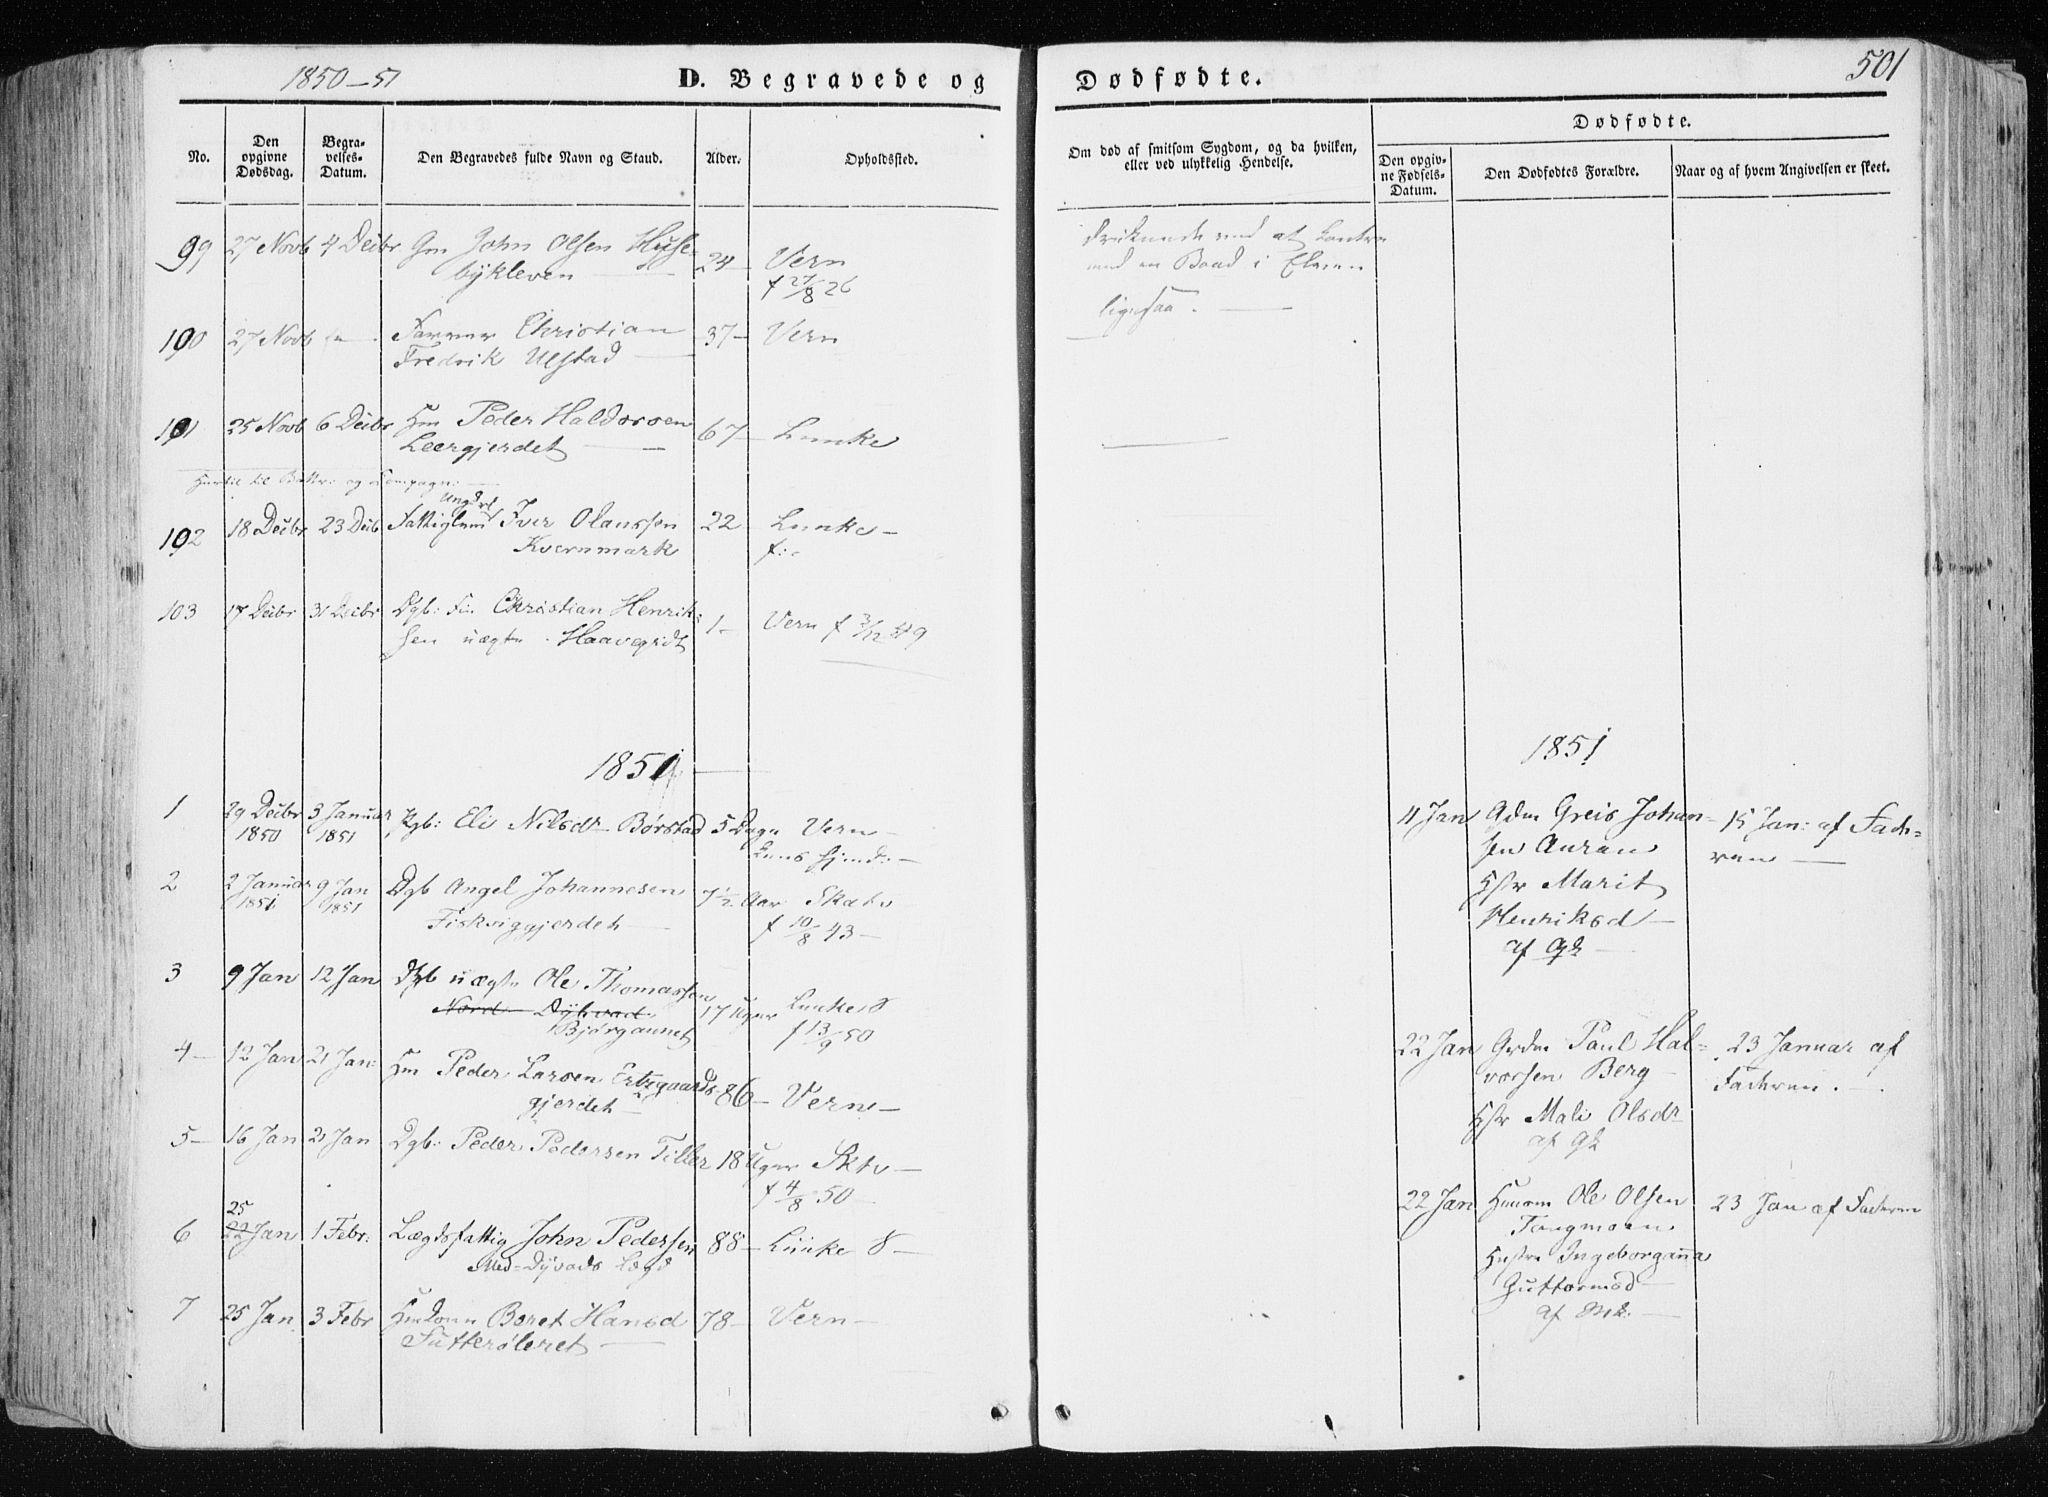 1850-51
D. Begravede og
Dødfødte.
501
No.
Den opgivne Dødsdag.
Begravelses-Datum.
Den Begravedes fulde Navn og Stand.
Alder.
Opholdssted.
Om død af smitsom Sygdom, og da hvilken,
eller ved ulykkelig Hendelse.
Dødfødte.
Den opgivne Fødsels-Datum.
Den Dødfødtes Forældre.
Naar og af hvem Angivelsen er skeet.
99 27 Novb 4 Decbr Gm John Olsen Hyse- 24 - Vern
bykleven f 27/8 26
druknede ved at kantre
med en Baad i Elven
100 27 Novb Farver Christian 37 - Vern
Fredrik Ulstad
ligesaa.
101 25 Novb 6 Decbr Hm Peder Haldorsen 67 - Lunke
Leergjerdet
Hertil til Bisk: og Compagn:
102 18 Decbr 23 Decb Fattiglem Ungkrl Iver Olaussen 22 Lunke -
Kvernmark
103 17 Decbr 31 Decbr Dgb: Fin Christian Henrik- 1 - Vern f 3/12 49
sen uægte Haavegrdt
1851
1 29 Decbr 3 Januar Pgb: Eli Nilsdr Børstad 5 Dage Vern
1850 1851
2 2 Januar 9 Jan Dgb Angel Johannesen 7 1/2 Aar Skatv
1851 1851 Fiskviggjerdet f 10/8 43 -
3 9 Jan 12 Jan Dgb uægte Ole Thomassen 17 Uger Lunke S
Nord Dybvad f 13/9 50
Bjørgaunet
4 - 12 Jan 21 Jan: Hm Peder Larsen Ertzgaards- 86 - Vern -
gjerdet
5 - 16 Jan 21 Jan Dgb: Peder Pedersen Tiller 18 Uger Sktv -
f 4/8 50 -
25
6 22 Jan 1 Febr: Lægdsfattig John Pedersen 88 - Lunke S -
Med-Dyvads Lægd
7 25 Jan 3 Febr Hmkone Beret Hansd 78 - Vern -
Sutterøleret
1851
11 Jan Gdm Greis Johan- 15 Jan: af Fade-
sen Auran ren
Hstr Marit
Henriksd
af Gk
22 Jan Grdm Paul Hal- 23 Januar af
vorsen Berg Faderen.
Hstr Mali Olsdr
af Gk
22 Jan Husm Ole Olsen 23 Jan af Faderen
Tangmoen
Hustru Ingeborganna
Guttormsd
af Mk: